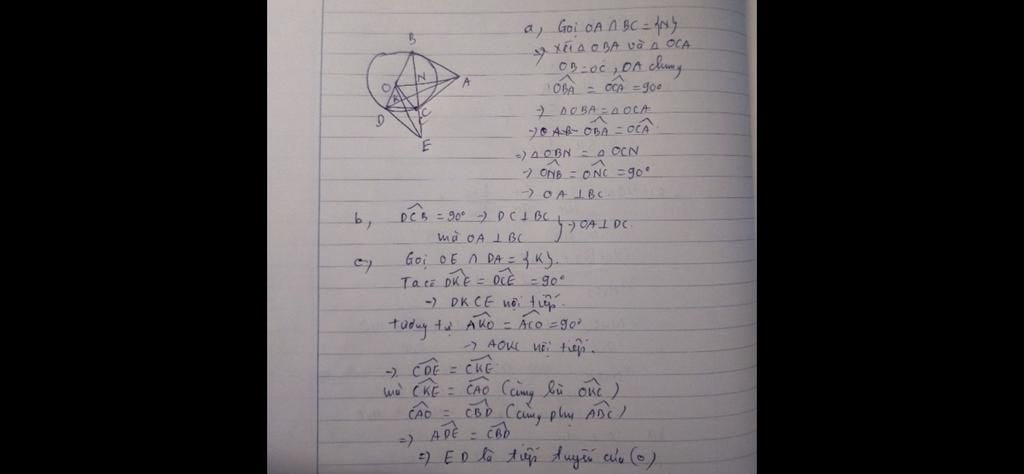 a, Gọi OA ∩ BC = {N}
B
→ Xét △OBA và △OCA
OB = OC, OA chung
O
N
A
K
∠OBA = ∠OCA = 90°
→ △OBA = △OCA
C
D
→ ∠OBA = ∠OCA
E
⇒ △OBN = △OCN
→ ∠ONB = ∠ONC = 90°
→ OA ⊥ BC
b, ∠DCB = 90° → DC ⊥ BC
mà OA ⊥ BC } → OA ⊥ DC.
c, Gọi OE ∩ DA = {K}.
Ta có ∠DKE = ∠DCE = 90°
→ DKCE nội tiếp.
tương tự ∠AKO = ∠ACO = 90°
→ AOKC nội tiếp.
→ ∠CDE = ∠CKE
mà ∠CKE = ∠CAO (cùng bù ∠OKC)
∠CAO = ∠CBD (cùng phụ ∠ABC)
⇒ ∠ADE = ∠CBD
⇒ ED là tiếp tuyến của (O)